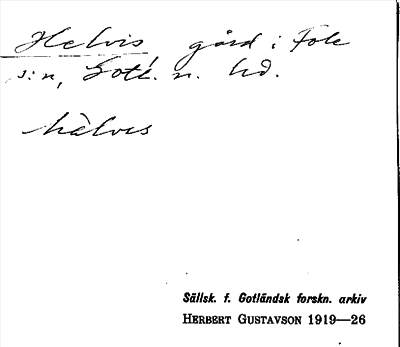 Helvis gård i Fole
s:n, Gotl. n. hd.
hèlvis
Sällsk. f. Gotländsk forskn. arkiv
HERBERT GUSTAVSON 1919—26